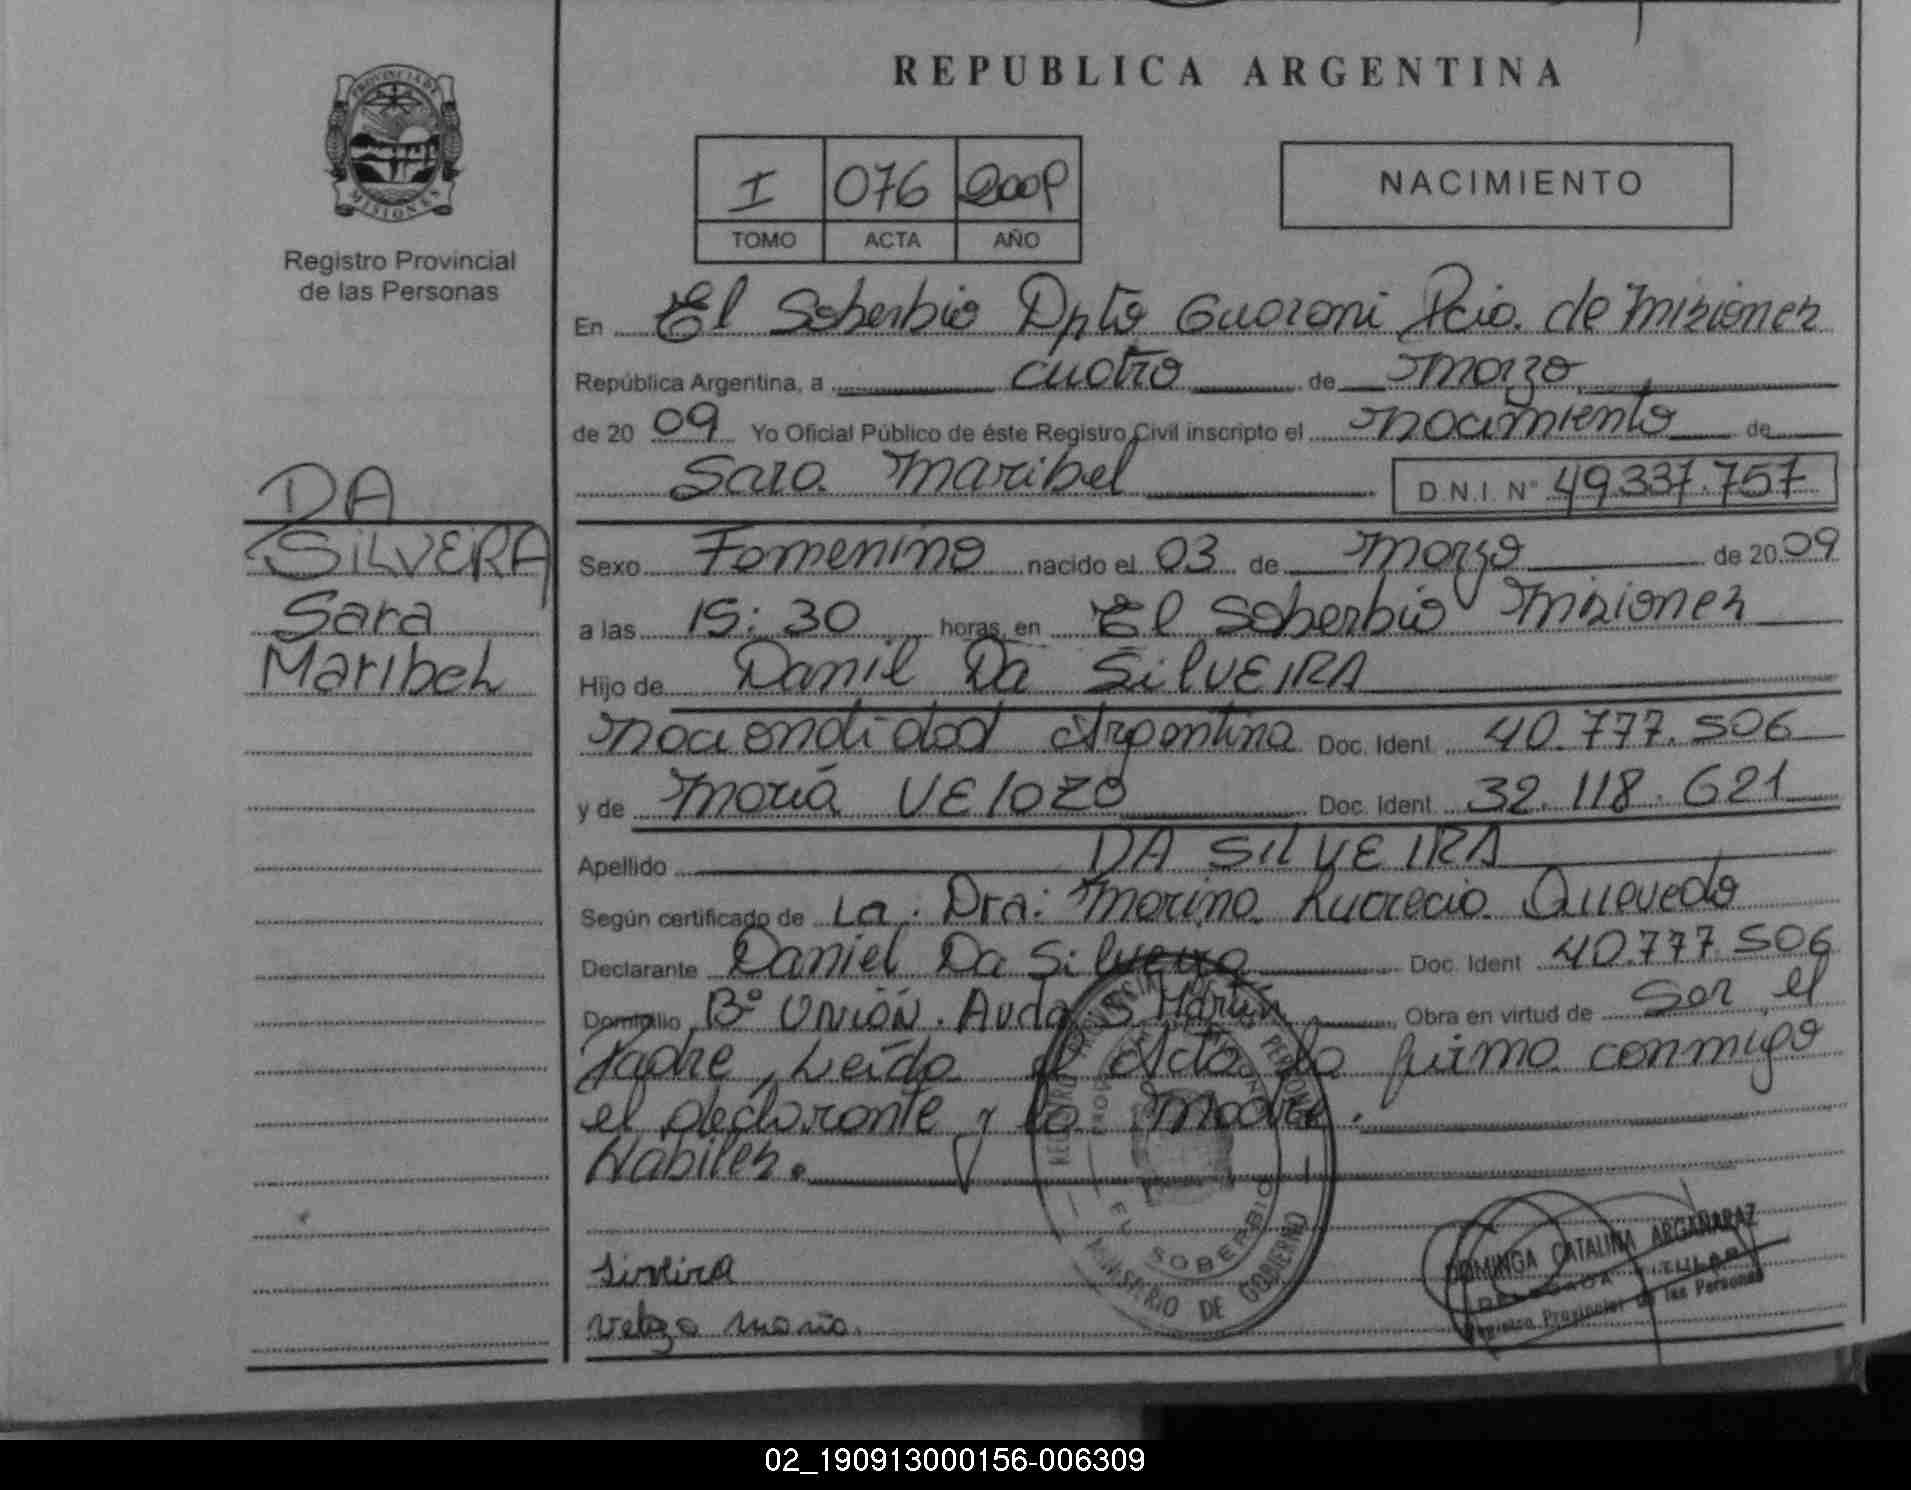 REPUBLICA ARGENTINA
PROVINCIA DE
MISIONES
Registro Provincial
de las Personas
I 076 2009
TOMO ACTA AÑO
NACIMIENTO
En El Soberbio Dpto Guarani Pcia. de Misiones
República Argentina, a cuatro de Marzo
de 20 09 Yo Oficial Público de éste Registro Civil inscripto el nacimiento de
Sara Maribel D.N.I. N° 49.337.757
DA
SILVEIRA
Sara
Maribel
Sexo Femenino nacido el 03 de Marzo de 20 09
a las 15:30 horas, en El Soberbio Misiones
Hijo de Daniel Da SilVEIRA
nacionalidad Argentina Doc. Ident 40.777.506
y de María VElozo Doc. Ident. 32.118.621
Apellido DA SILVEIRA
Según certificado de La. Dra: Marina Lucrecia Quevedo
Declarante Daniel Da Silveira Doc. Ident 40.777.506
Domicilio B° Unión. Avda S Martin Obra en virtud de Ser el
Padre, Leída el Acta la firma conmigo
el declarante y la Madre.
Habiles.
Silveira
Velozo Maria.
REGISTRO PROVINCIAL DE LAS PERSONAS
EL SOBERBIO
MINISTERIO DE GOBIERNO
DOMINGA CATALINA ARGAÑARAZ
DELEGADA TITULAR
Registro Provincial de las Personas
02_190913000156-006309